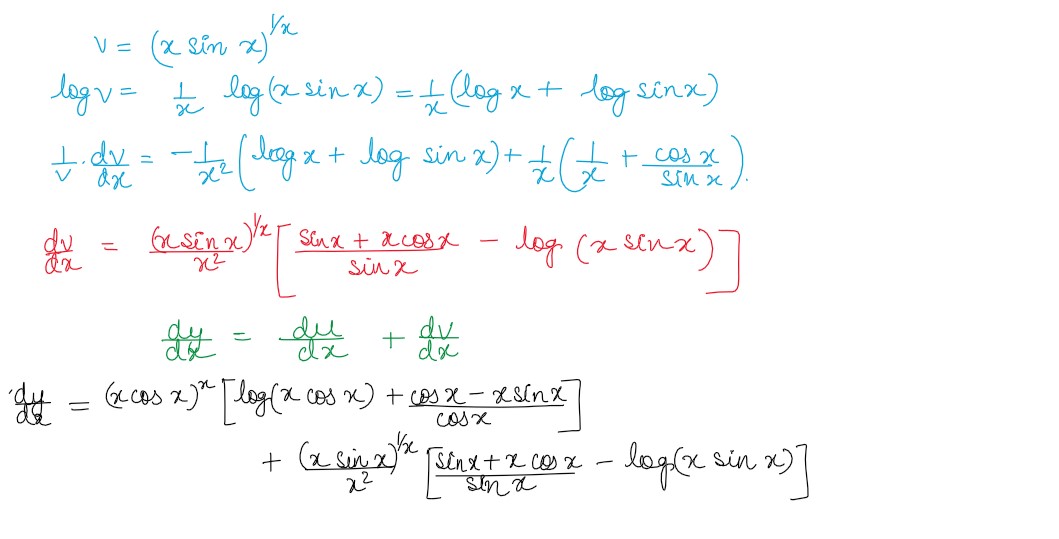 v = (x sin x)^{1/x}
log v = 1/x log(x sin x) = 1/x (log x + log sin x)
1/v . dv/dx = -1/x² (log x + log sin x) + 1/x (1/x + cos x/sin x).
dv/dx = (x sin x)^{1/x}/x² [(sin x + x cos x)/sin x - log (x sin x)]
dy/dx = du/dx + dv/dx
dy/dx = (x cos x)^x [log(x cos x) + (cos x - x sin x)/cos x]
+ (x sin x)^{1/x}/x² [(sin x + x cos x)/sin x - log(x sin x)]